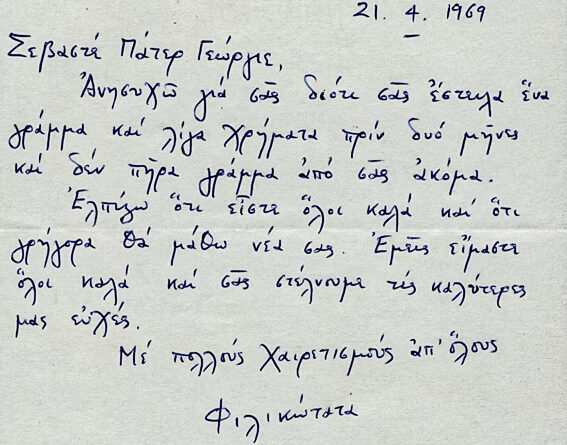 21. 4. 1969
Σεβαστέ Πάτερ Γεώργιε,
Ἀνησυχῶ γιά σᾶς διότι σᾶς ἔστειλα ἕνα
γράμμα καί λίγα χρήματα πρίν δυό μῆνες
καί δέν πῆρα γράμμα ἀπό σᾶς ἀκόμα.
Ἐλπίζω ὅτι εἶστε ὅλοι καλά καί ὅτι
γρήγορα θά μάθω νέα σας. Ἐμεῖς εἴμαστε
ὅλοι καλά καί σᾶς στέλνουμε τίς καλύτερες
μας εὐχές.
Μέ πολλούς χαιρετισμούς ἀπ' ὅλους
Φιλικώτατα